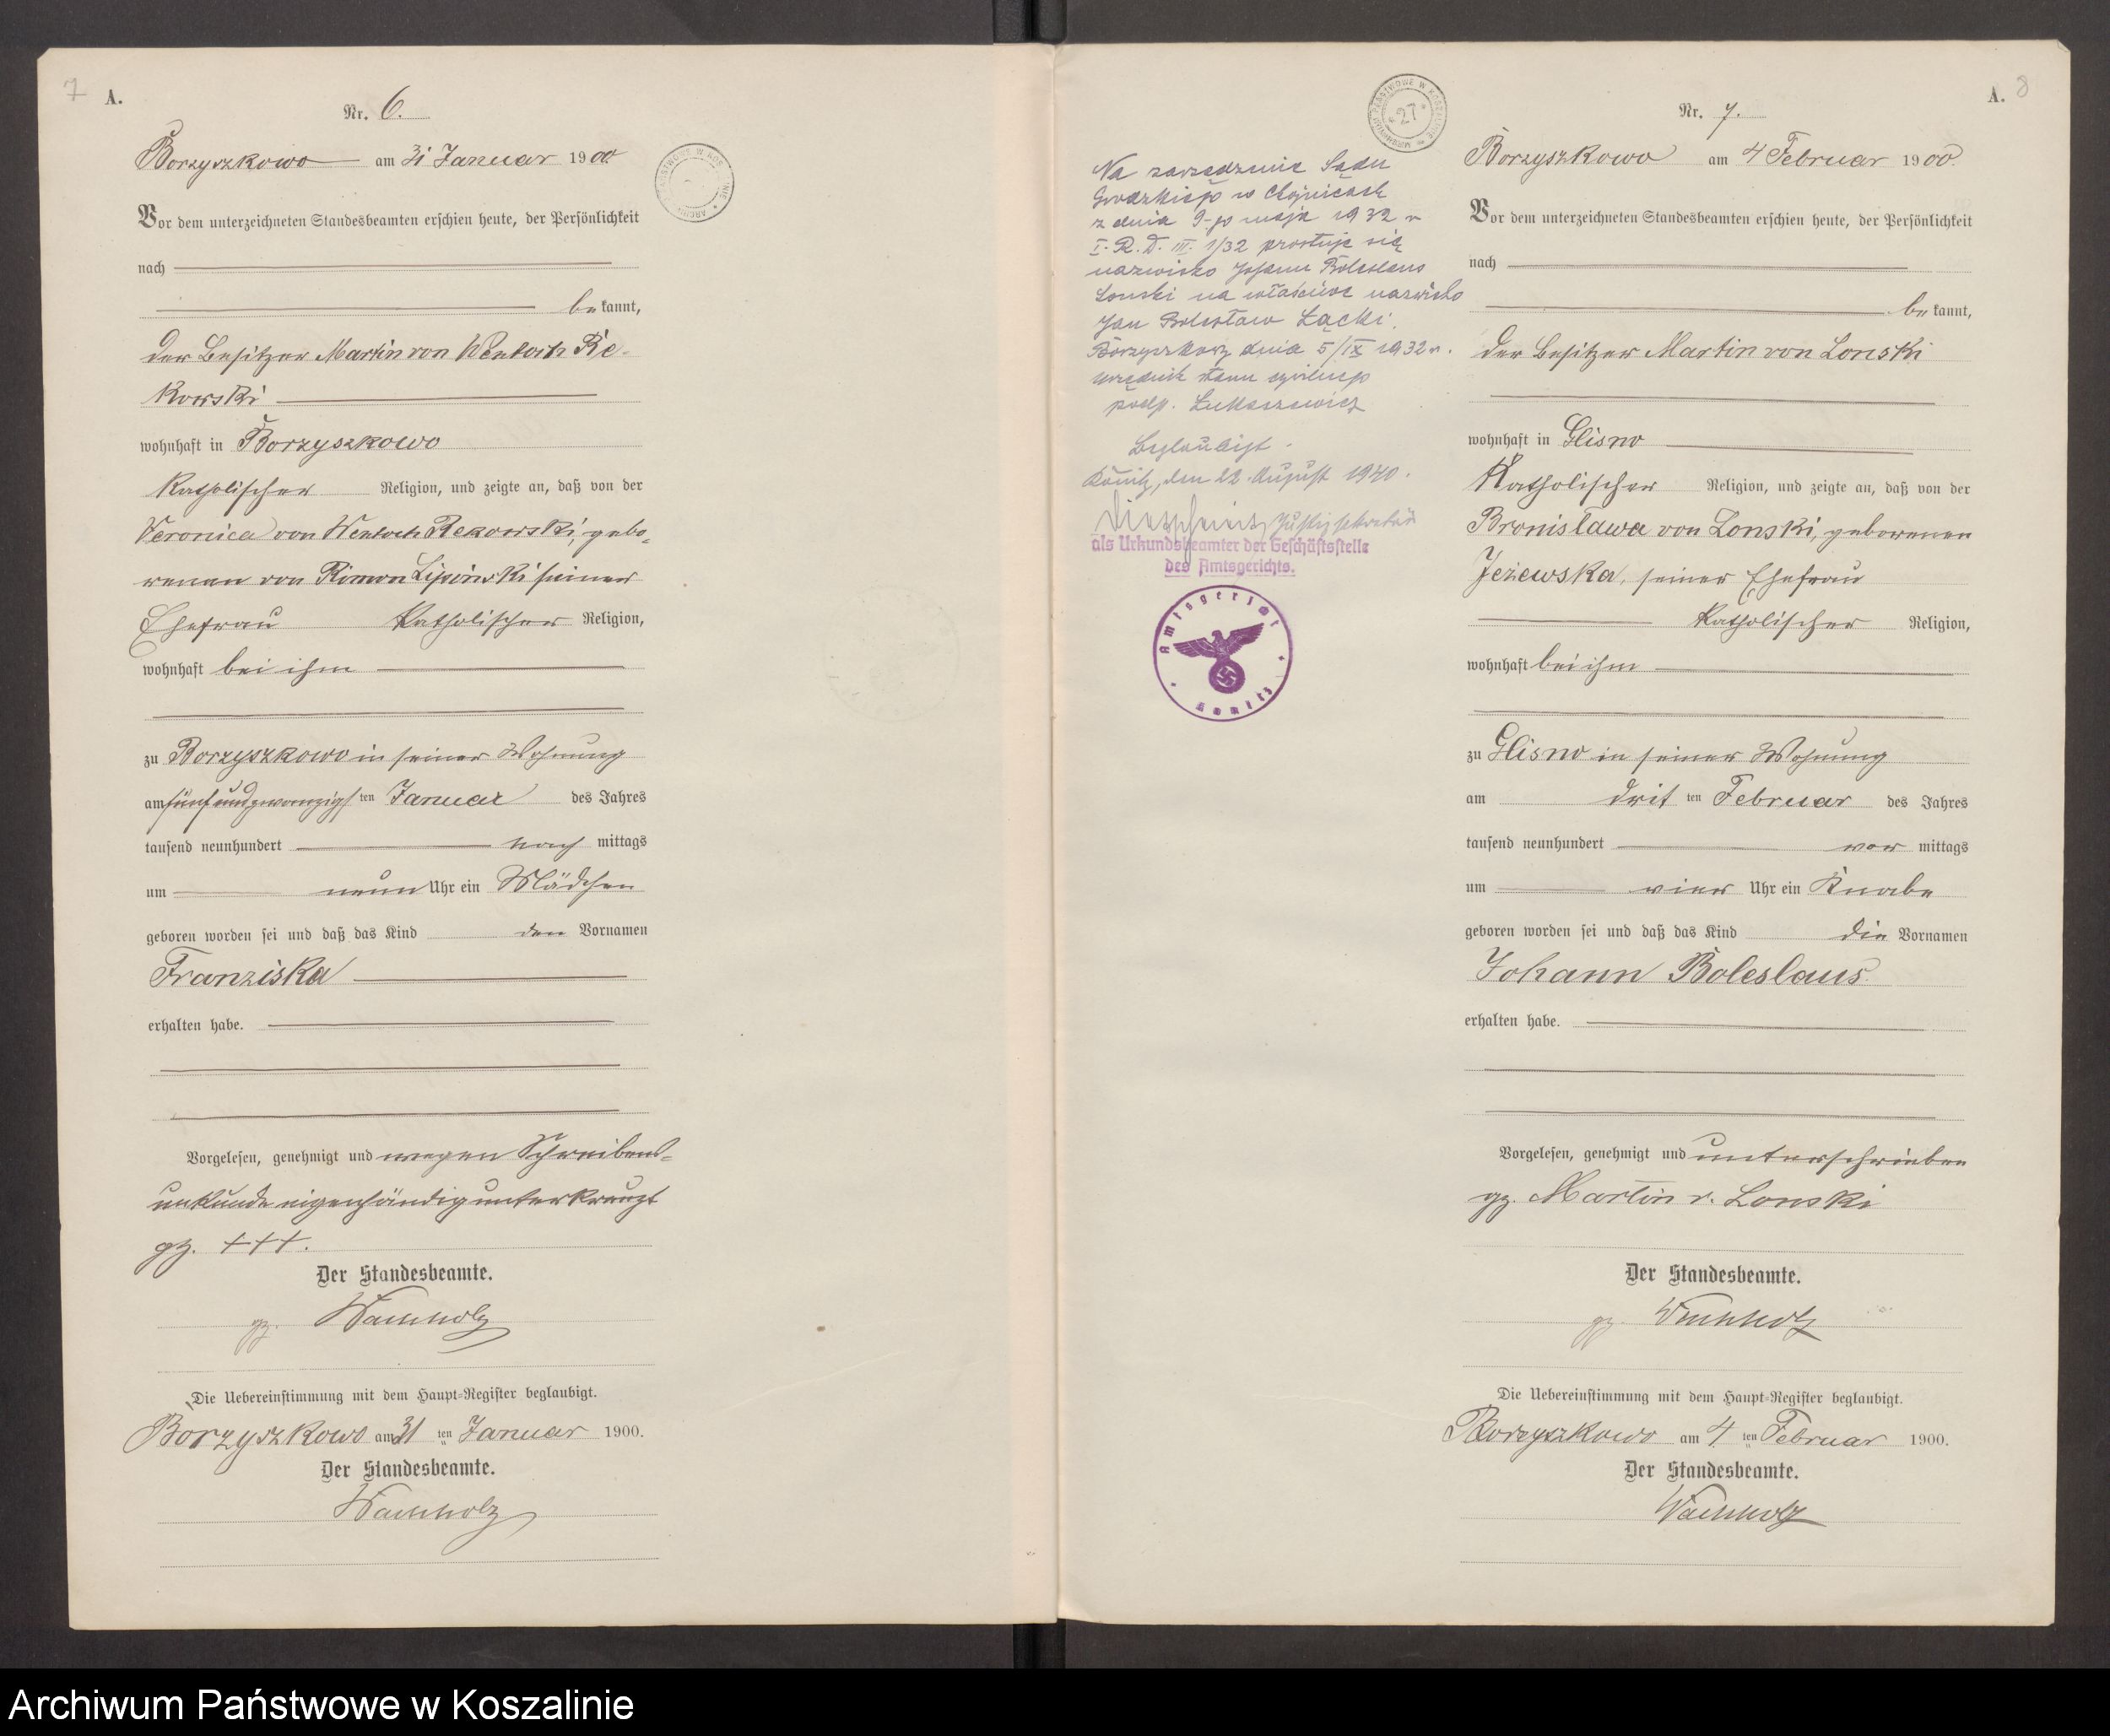 7
A.
Nr. 6.
Borzyszkowo am 31 Januar 1900
Vor dem unterzeichneten Standesbeamten erschien heute, der Persönlichkeit
nach
bekannt,
der Besitzer Martin von Wentoch Re-
kowski
wohnhaft in Borzyszkowo
katholischer Religion, und zeigte an, daß von der
Veronica von Wentoch Rekowski, gebo-
renen von Rimon Lipinski seiner
Ehefrau katholischer Religion,
wohnhaft bei ihm
zu Borzyszkowo in seiner Wohnung
am fünfundzwanzigsten Januar des Jahres
tausend neunhundert nach mittags
um neun Uhr ein Mädchen
geboren worden sei und daß das Kind den Vornamen
Franziska
erhalten habe.
Vorgelesen, genehmigt und wegen Schreibens-
unkunde eigenhändig unterkreuzt
gz. +++.
Der Standesbeamte.
gz. Wachholz
Die Uebereinstimmung mit dem Haupt-Register beglaubigt.
Borzyszkowo am 31 ten Januar 1900.
Der Standesbeamte.
Wachholz
A. 8
Nr. 7.
Borzyszkowo am 4 Februar 1900.
Vor dem unterzeichneten Standesbeamten erschien heute, der Persönlichkeit
nach
bekannt,
der Besitzer Martin von Lonski
wohnhaft in Glisno
katholischer Religion, und zeigte an, daß von der
Bronisława von Lonski, geborenen
Jeżewska, seiner Ehefrau
katholischer Religion,
wohnhaft bei ihm
zu Glisno in seiner Wohnung
am dritten Februar des Jahres
tausend neunhundert vor mittags
um vier Uhr ein Knabe
geboren worden sei und daß das Kind die Vornamen
Johann Boleslaus
erhalten habe.
Vorgelesen, genehmigt und unterschrieben
gz. Martin v. Lonski
Der Standesbeamte.
gz. Wachholz
Die Uebereinstimmung mit dem Haupt-Register beglaubigt.
Borzyszkowo am 4 ten Februar 1900.
Der Standesbeamte.
Wachholz
27
Na zarządzenie Sądu
Grodzkiego w Chojnicach
z dnia 9-go maja 1932 r
I. R. D. III. 1/32 prostuje się
nazwisko Johann Boleslaus
Lonski na właściwe nazwisko
Jan Bolesław Łącki.
Borzyszkowy dnia 5/IX 1932 r.
urzędnik stanu cywilnego
podp. Łukaszewicz
Beglaubigt.
Konitz, den 22. August 1940.
Justizsekretär
als Urkundsbeamter der Geschäftsstelle
des Amtsgerichts.
Amtsgericht
Konitz
Archiwum Państwowe w Koszalinie